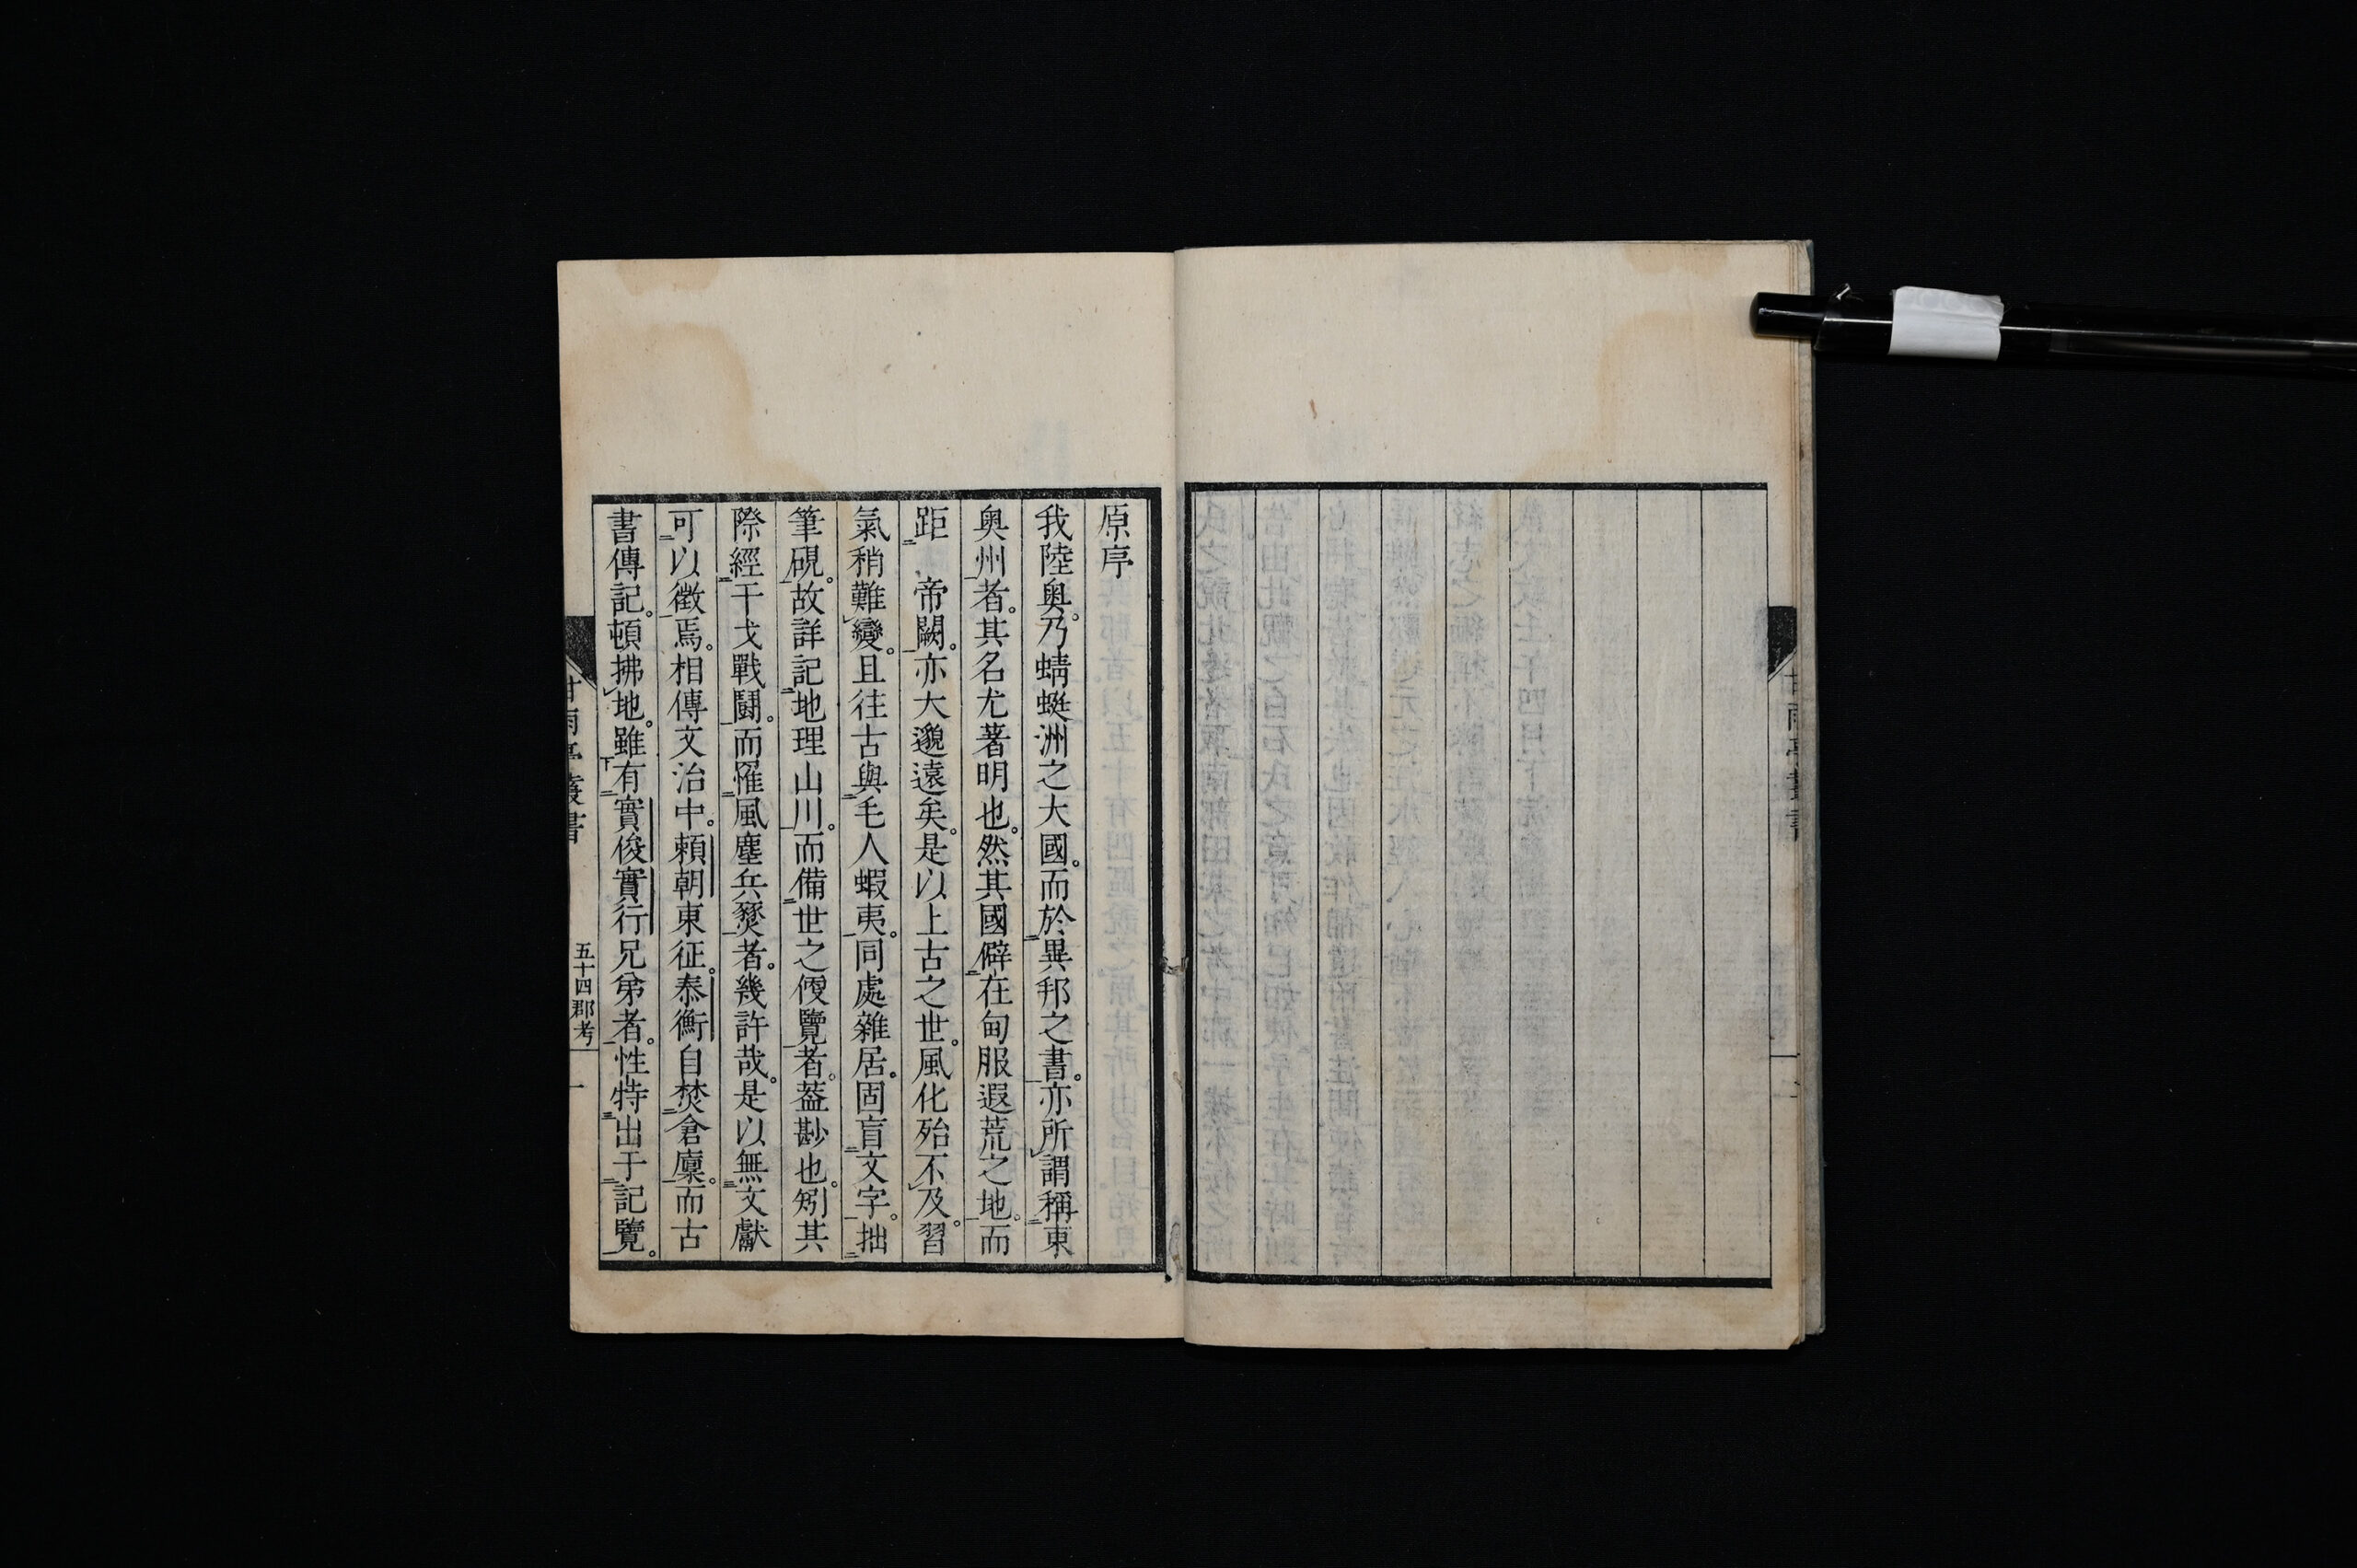 原序
我陸奥。乃蜻蜓洲之大國。而於異邦之書。亦所謂稱東
奥州者。其名尤著明也。然其國僻在甸服遐荒之地。而
距　帝闕。亦大邈遠矣。是以上古之世。風化殆不及。習
氣稍難變。且往古與毛人蝦夷。同處雜居。固盲文字。拙
筆硯。故詳記地理山川。而備世之復覽者。蓋尠也。矧其
際經干戈戰鬪。而罹風塵兵燹者。幾許哉。是以無文獻
可以徵焉。相傳文治中。賴朝東征。泰衡自焚倉廩。而古
書傳記。頓拂地。雖有實俊實行兄弟者。性特出于記覽。
甘雨亭叢書
五十四郡考
一